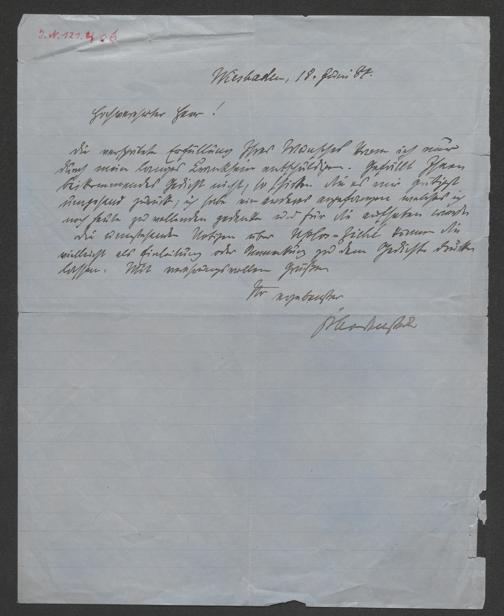 J.N. 121.
Wiesbaden, 18. Juni 87.
Hochverehrter Herr!
Die verspätete Erfüllung Ihres Wunsches kann ich nur
durch mein langes Kranksein entschuldigen. Gefällt Ihnen
beikommendes Gedicht nicht, so schicken Sie es mir gütigst
umgehend zurück; ich habe ein anderes angefangen welches ich
noch heute zu vollenden gedenke und für Sie
Die umstehenden Notizen über kann Sie
vielleicht als Einleitung oder Anmerkung zu dem Gedichte drucken
lassen. Mit verehrungsvollen Grüßen
Ihr ergebenster
Bodenstedt